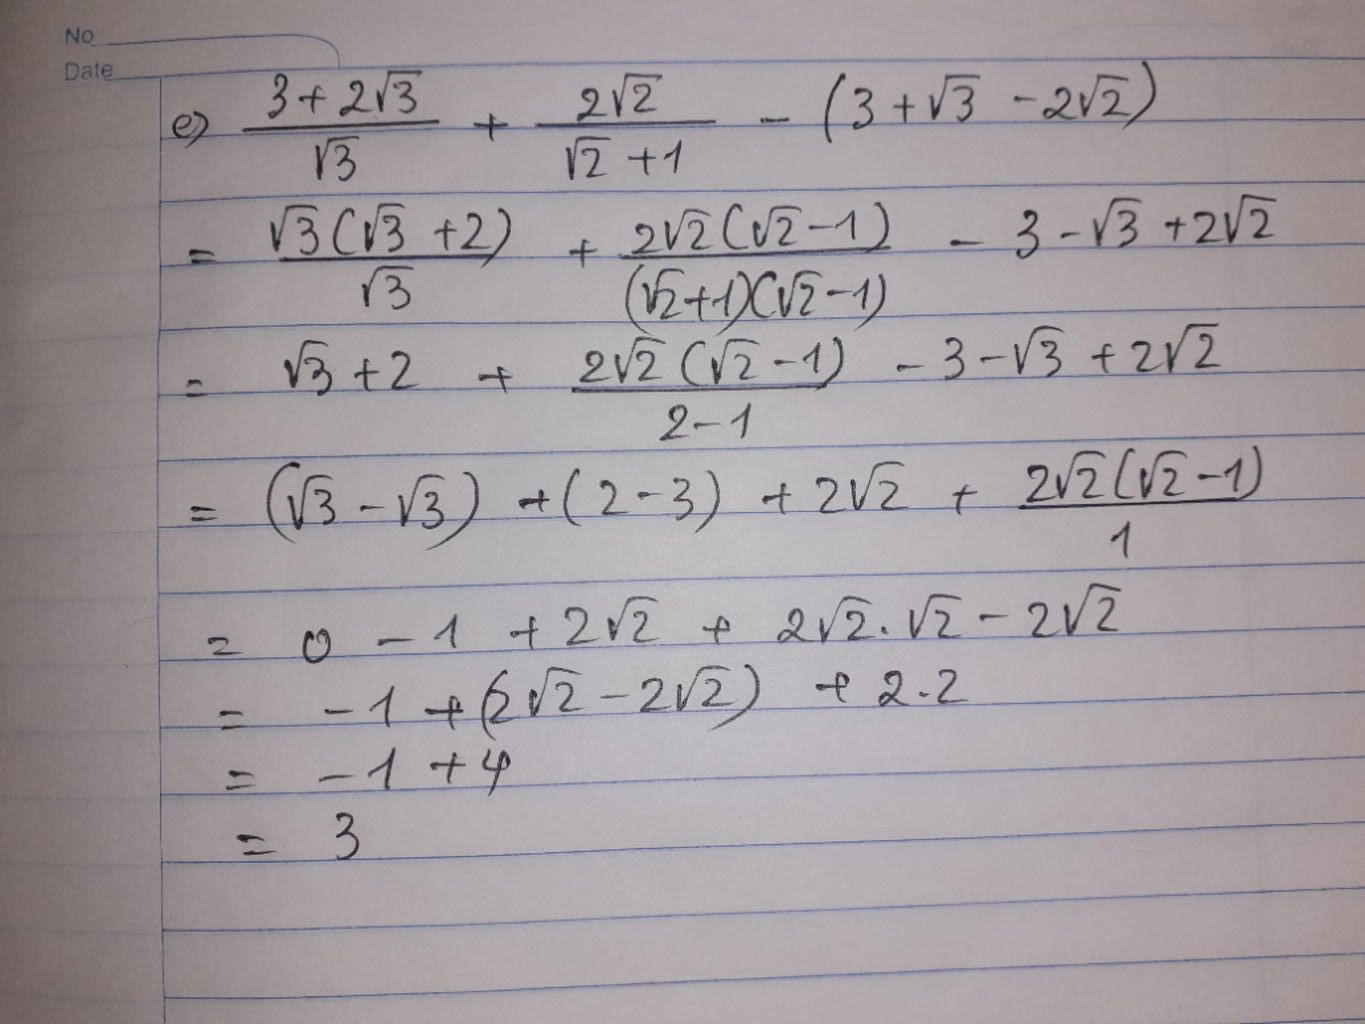 No
Date
e) (3+2√3)/√3 + 2√2/(√2+1) - (3+√3-2√2)
= √3(√3+2)/√3 + 2√2(√2-1)/((√2+1)(√2-1)) - 3-√3+2√2
= √3+2 + 2√2(√2-1)/(2-1) - 3-√3+2√2
= (√3-√3) + (2-3) + 2√2 + 2√2(√2-1)/1
= 0 - 1 + 2√2 + 2√2.√2 - 2√2
= -1 + (2√2-2√2) + 2.2
= -1+4
= 3